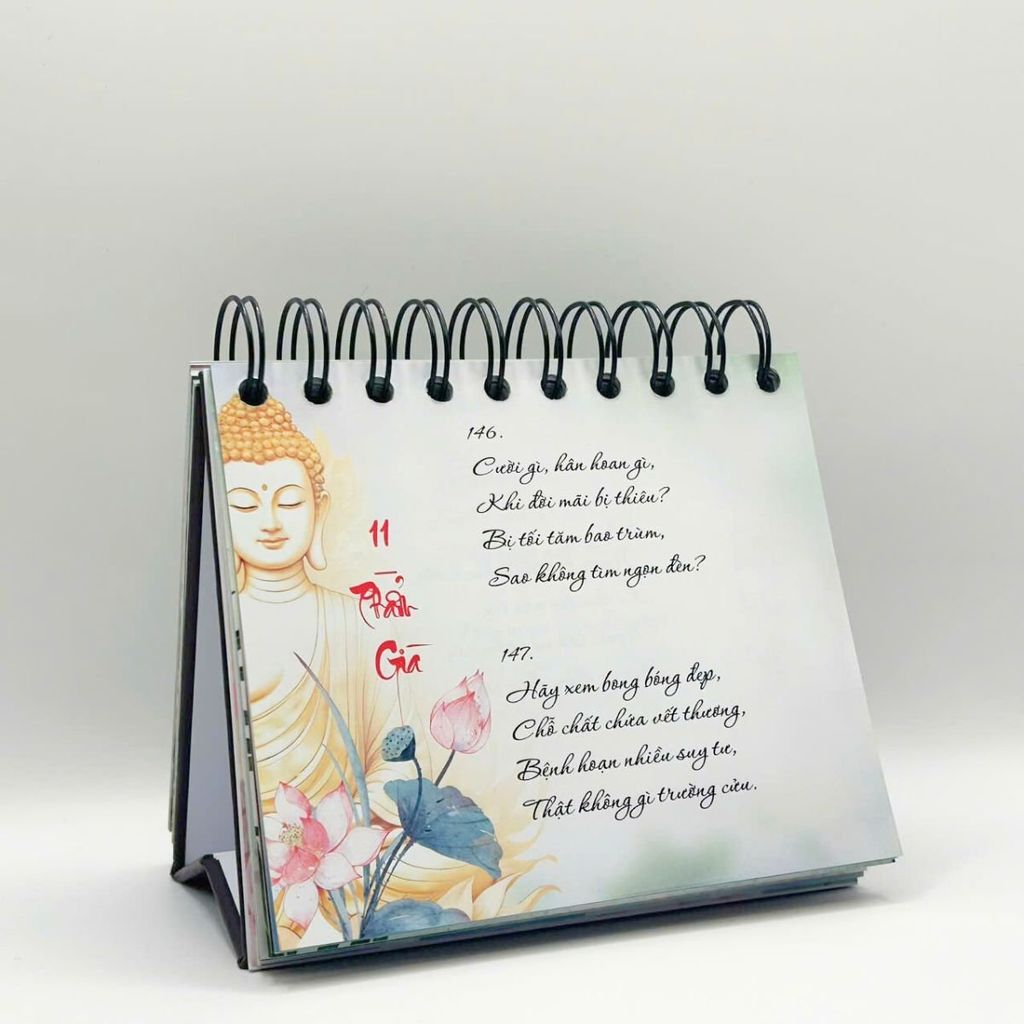 11
_
Phẩm
Già
146.
Cười gì, hân hoan gì,
Khi đời mãi bị thiêu?
Bị tối tăm bao trùm,
Sao không tìm ngọn đèn?
147.
Hãy xem bong bóng đẹp,
Chỗ chất chứa vết thương,
Bệnh hoạn nhiều suy tư,
Thật không gì trường cửu.